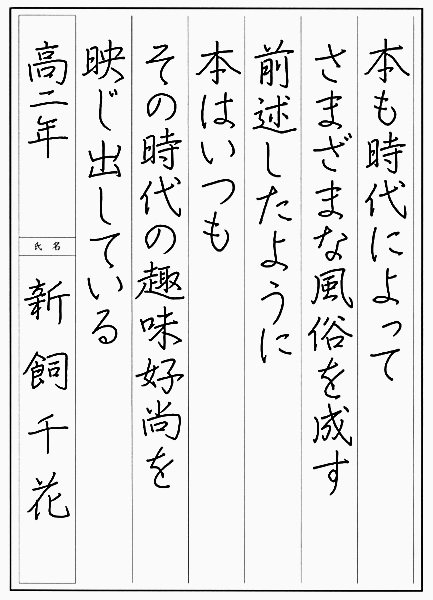 本も時代によって
さまざまな風俗を成す
前述したように
本はいつも
その時代の趣味好尚を
映じ出している
高二年
氏名
新飼千花